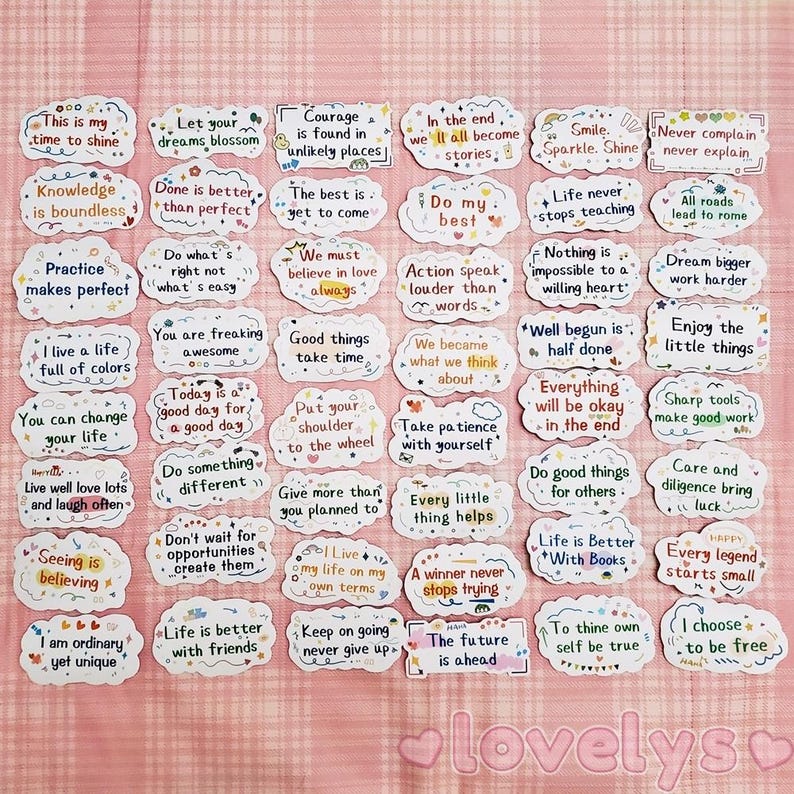 This is my
time to shine
Let your
dreams blossom
Courage
is found in
unlikely places
In the end
we'll all become
stories.
Smile.
Sparkle. Shine
Never complain
never explain
Knowledge
is boundless
Done is better
than perfect
The best is
yet to come
Do my
best
Life never
stops teaching
All roads
lead to rome
Practice
makes perfect
Do what's
right not
what's easy
We must
believe in love
always
Action speak
louder than
words
Nothing is
impossible to a
willing heart
Dream bigger
work harder
I live a life
full of colors
You are freaking
awesome
Good things
take time
We became
what we think
about
Well begun is
half done
Enjoy the
little things
You can change
your life
Today is a
good day for
a good day
Put your
shoulder
to the wheel
Take patience
with yourself
Everything
will be okay
in the end
Sharp tools
make good work
Happy
Live well love lots
and laugh often
Do something
different
Give more than
you planned to
Every little
thing helps
Do good things
for others
Care and
diligence bring
luck
Seeing is
believing
Don't wait for
opportunities
create them
I Live
my life on my
own terms
A winner never
stops trying
Life is Better
With Books
HAPPY
Every legend
starts small
I am ordinary
yet unique
Life is better
with friends
Keep on going
never give up
HAHA
The future
is ahead
To thine own
self be true
I choose
to be free
HAHA
lovelys